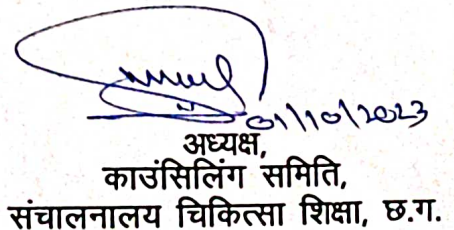 01/10/2023
अध्यक्ष,
काउंसिलिंग समिति,
संचालनालय चिकित्सा शिक्षा, छ.ग.